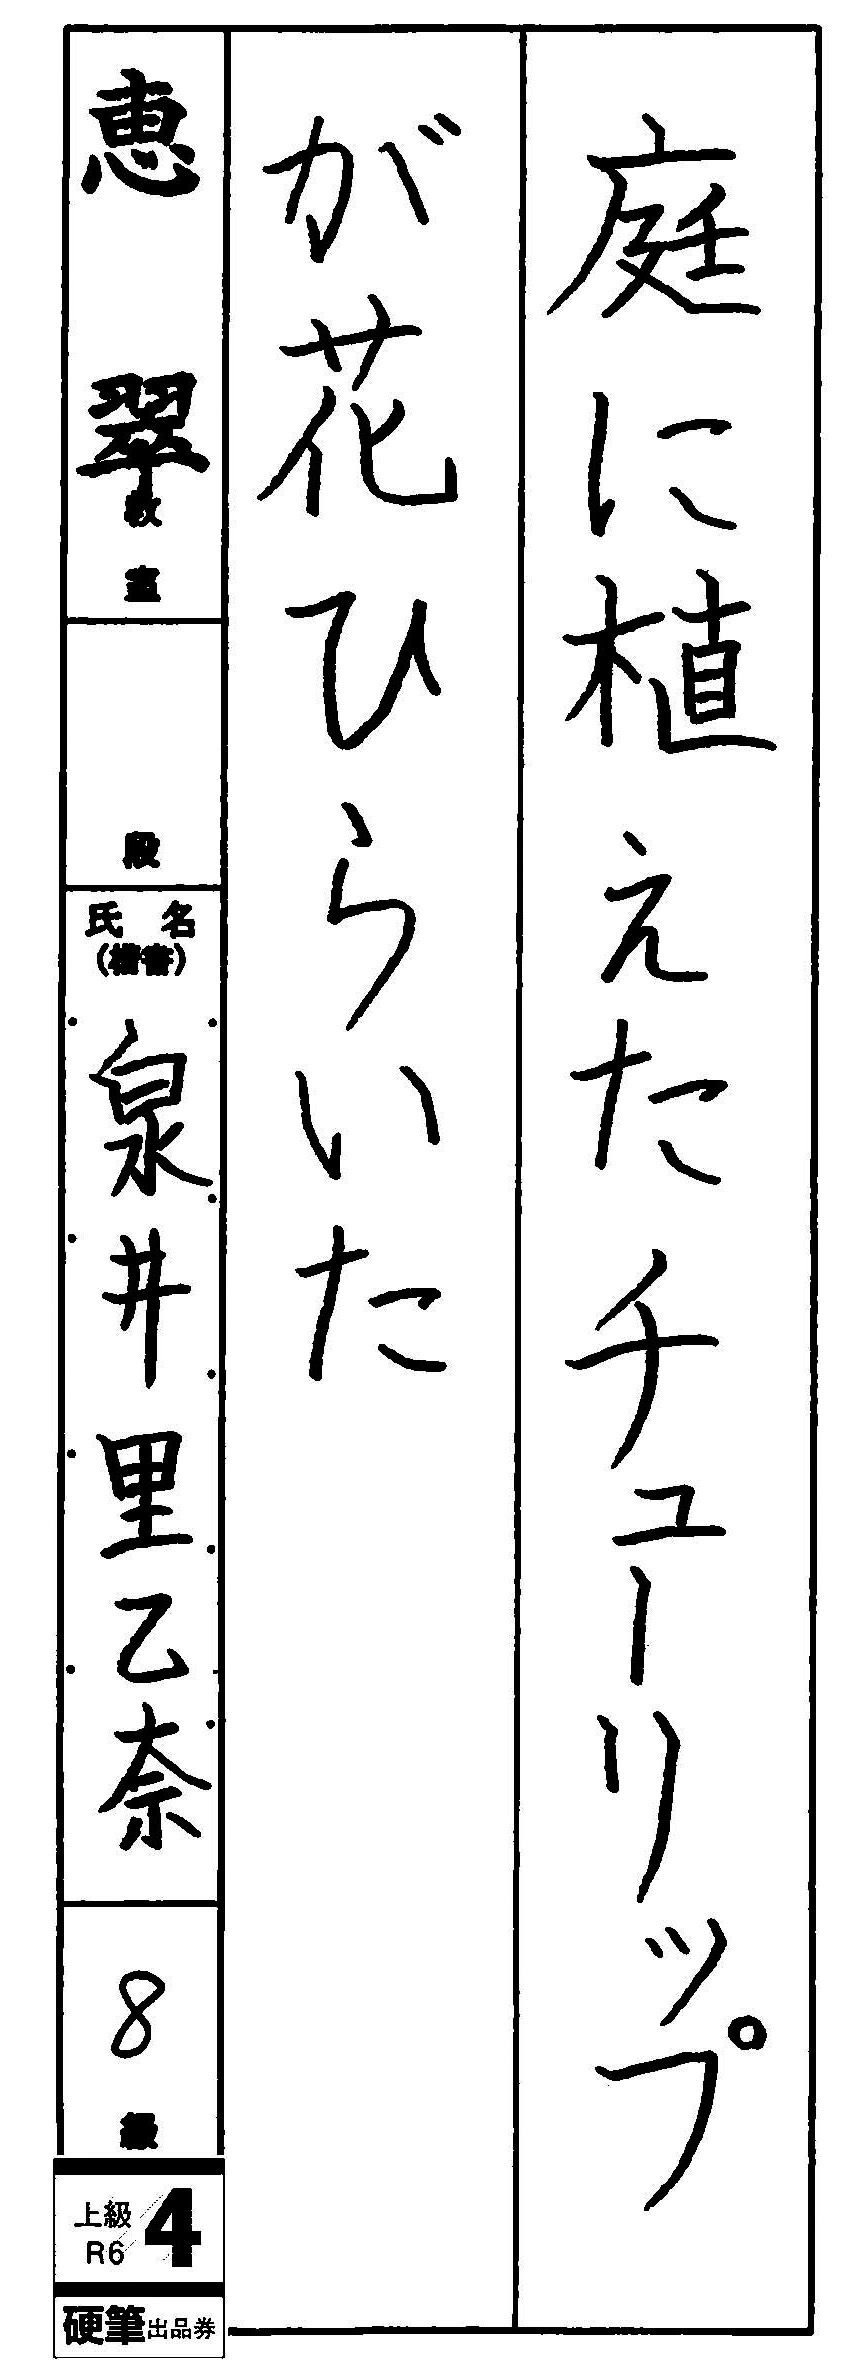 庭に植えたチューリップ
が花ひらいた
恵翠教室
段
氏名
(楷書)
泉井里乙奈
8級
上級
R6
4
硬筆出品券